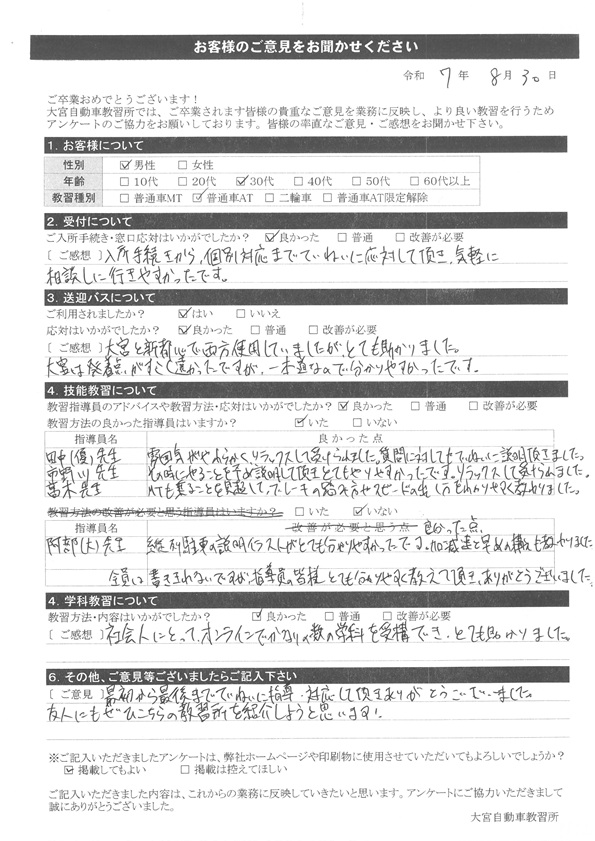 お客様のご意見をお聞かせください
令和 7 年 8 月 30 日
ご卒業おめでとうございます！
大宮自動車教習所では、ご卒業されます皆様の貴重なご意見を業務に反映し、より良い教習を行うため
アンケートのご協力をお願いしております。皆様の率直なご意見・ご感想をお聞かせ下さい。
1. お客様について
性別 ☑男性 □女性
年齢 □10代 □20代 ☑30代 □40代 □50代 □60代以上
教習種別 □普通車MT ☑普通車AT □二輪車 □普通車AT限定解除
2. 受付について
ご入所手続き・窓口応対はいかがでしたか？ ☑良かった □普通 □改善が必要
[ ご感想 ] 入所手続きから、個別対応までていねいに応対して頂き、気軽に
相談しに行きやすかったです。
3. 送迎バスについて
ご利用されましたか？ ☑はい □いいえ
応対はいかがでしたか？ ☑良かった □普通 □改善が必要
[ ご感想 ] 大宮と新都心で両方使用していましたが、とても助かりました。
大宮は発着点がすごく遠かったですが、一本道なので分かりやすかったです。
4. 技能教習について
教習指導員のアドバイスや教習方法・応対はいかがでしたか？ ☑良かった □普通 □改善が必要
教習方法の良かった指導員はいますか？ ☑いた □いない
指導員名 良かった点
田中(優)先生 雰囲気がやわらかくリラックスして受けられました。質問に対してもていねいに説明頂きました。
市野川先生 その時にやることを予め説明して頂きとてもやりやすかったです。リラックスして受けられました。
先生 MTも乗ることを見越して、ブレーキの踏み方やスピードの出し方をわかりやすく教わりました。
教習方法の改善が必要と思う指導員はいますか？ □いた ☑いない
指導員名 改善が必要と思う点 良かった点
阿部(大)先生 縦列駐車の説明イラストがとても分かりやすかったです。加減速と早めの構えも教わりました
全員は書ききれないですが、指導員の皆様とても分かりやすく教えて頂き、ありがとうございました。
4. 学科教習について
教習方法・内容はいかがでしたか？ ☑良かった □普通 □改善が必要
[ ご感想 ] 社会人にとって、オンラインでかなりの数の学科を受講でき、とても助かりました。
6. その他、ご意見等ございましたらご記入下さい
[ ご意見 ] 最初から最後までていねいに指導・対応して頂きありがとうございました。
友人にもぜひこちらの教習所を紹介しようと思います！
※ご記入いただきましたアンケートは、弊社ホームページや印刷物に使用させていただいてもよろしいでしょうか？
☑掲載してもよい □掲載は控えてほしい
ご記入いただきました内容は、これからの業務に反映していきたいと思います。アンケートにご協力いただきまして
誠にありがとうございました。
大宮自動車教習所